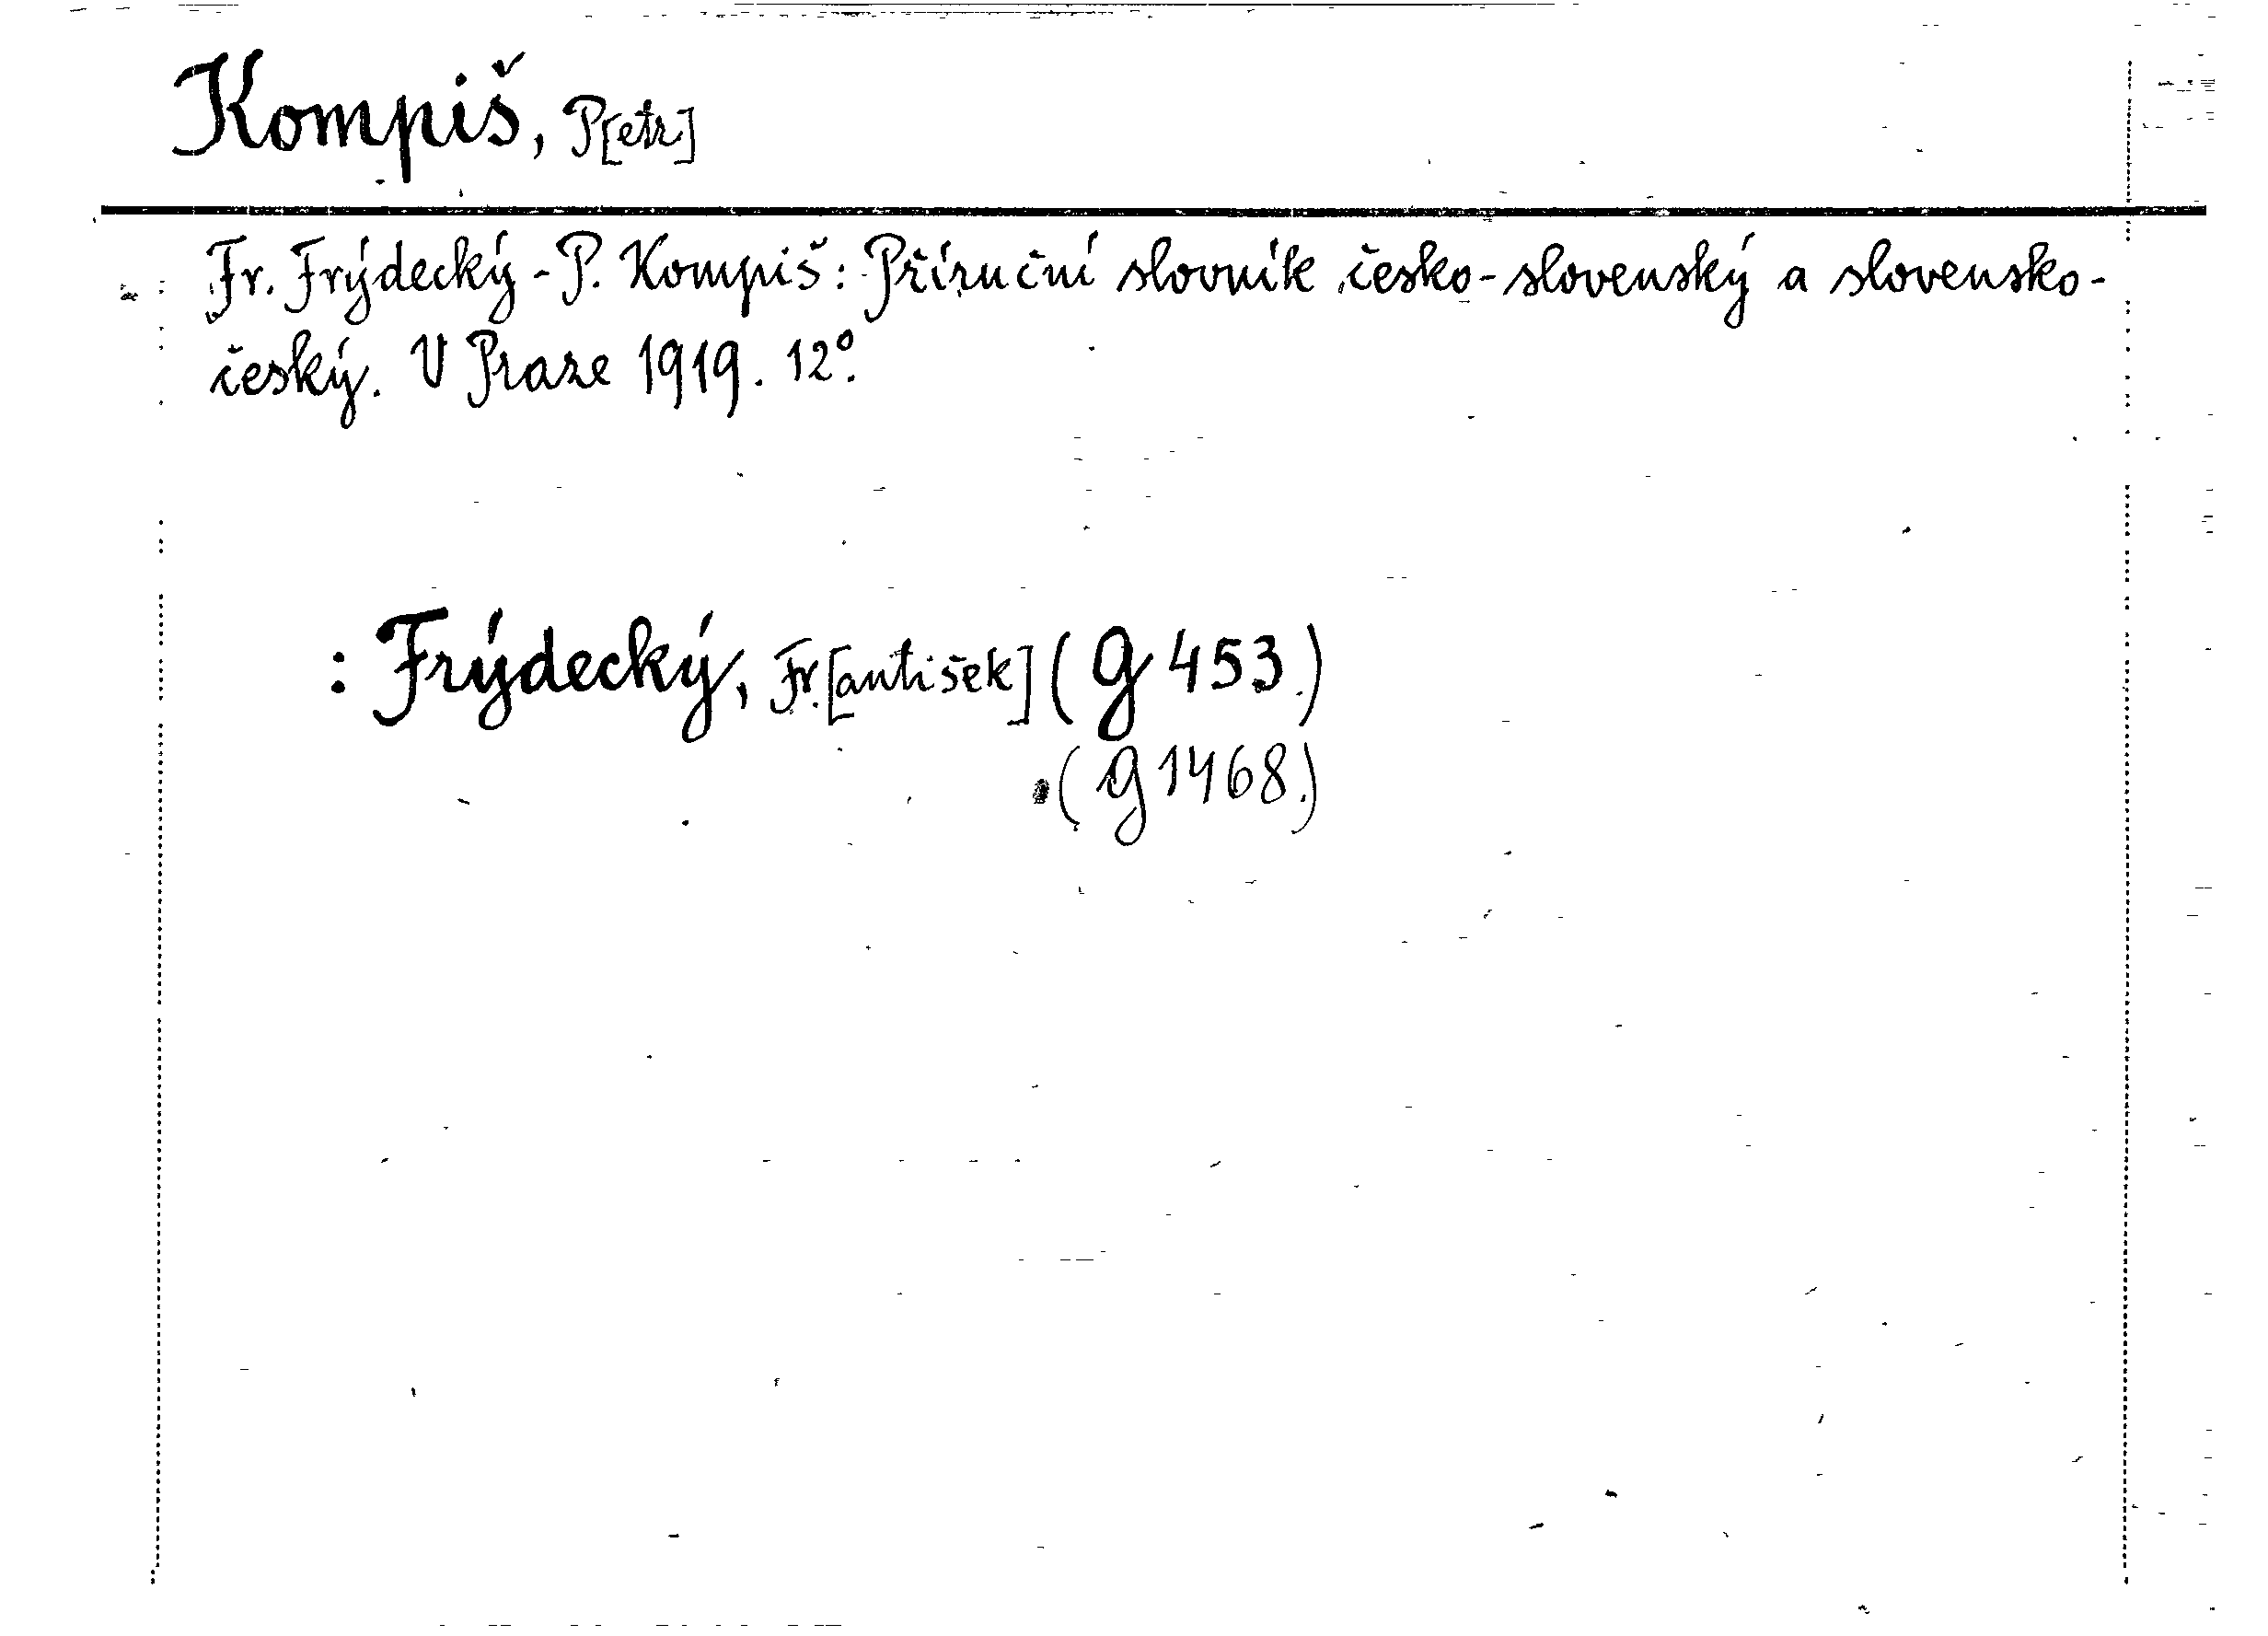 Kompiš, P[etr]
Fr. Frýdecký - P. Kompiš: Příruční slovník česko-slovenský a slovensko-
český. V Praze 1919. 12°.
: Frýdecký, Fr.[antišek] (g 453.)
(g 1468.)